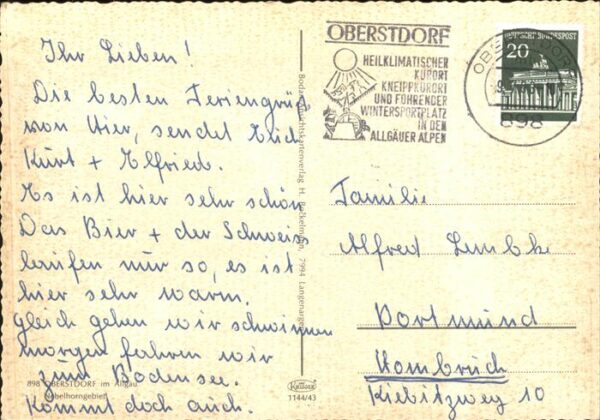 Ihr Lieben!
Die besten Feriengrüße
von hier, sendet Euch
Kurt + Elfried.
Es ist hier sehr schön
Das Bier + der Schweiss
laufen nur so, es ist
hier sehr warm.
gleich gehen wir schwimmen
morgen fahren wir
zum Bodensee.
Kommt doch auch.
898 OBERSTDORF im Allgäu
Nebelhorngebiet
Bodan-Ansichtskartenverlag H. 7994 Langenargen
1144/43
OBERSTDORF
HEILKLIMATISCHER
KURORT
KNEIPPKURORT
UND FÜHRENDER
WINTERSPORTPLATZ
IN DEN
ALLGÄUER ALPEN
OBERSTDORF
898
DEUTSCHE BUNDESPOST
20
Familie
Alfred Lembke
Dortmund
Hombruch
Kiebitzweg 10